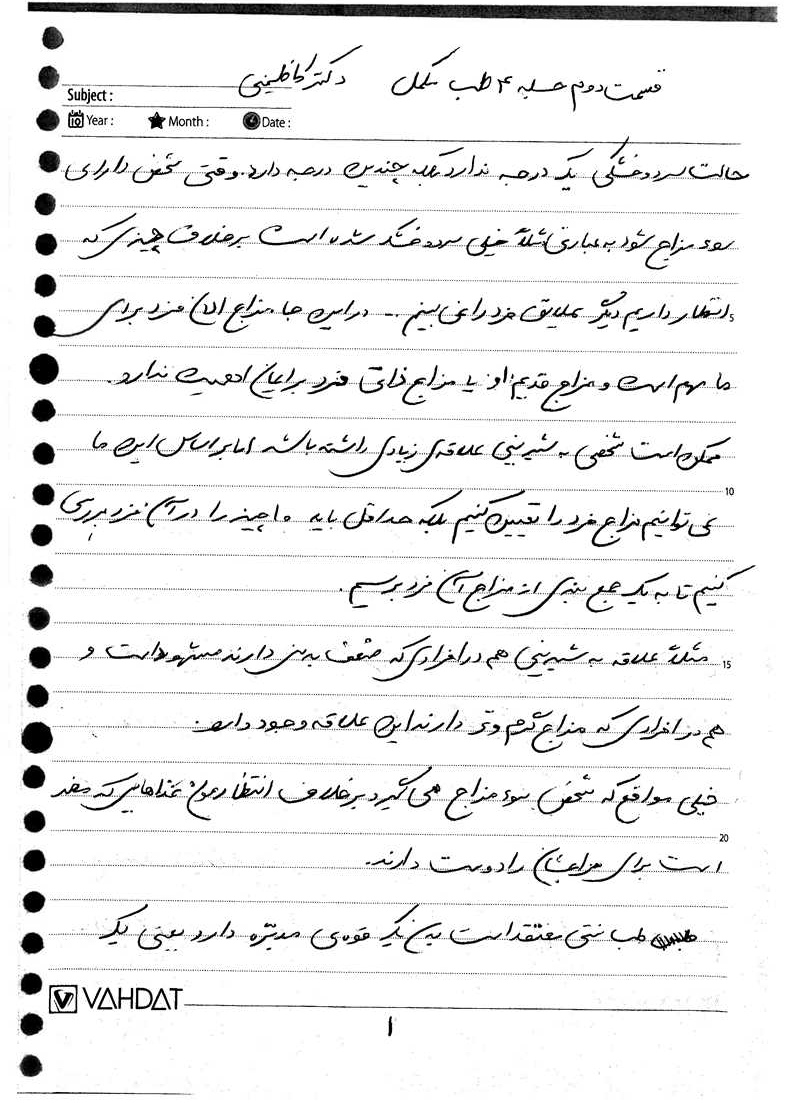 قسمت دوم جلسه ۴ طب مکمل دکتر کاظمینی
Subject :
Year : Month : Date :
حالت سرد و خشکی یک درجه ندارد بلکه چندین درجه دارد. وقتی شخص دارای
سوء مزاج شود به عبارتی مثلاً خیلی سرد و خشک شده است برخلاف چیزی که
5
انتظار داریم دیگر علایق فرد را نمی بینیم .. در این جا مزاج الان فرد برای
ما مهم است و مزاج قدیم او یا مزاج ذاتی فرد برایمان اهمیت ندارد.
ممکن است شخصی به شیرینی علاقه ی زیادی داشته باشد اما بر اساس این ما
10
نمی توانیم مزاج فرد را تعیین کنیم بلکه حداقل باید ۱۰ چیز را در آن فرد بررسی
کنیم تا به یک جمع بندی از مزاج آن فرد برسیم.
15
مثلاً علاقه به شیرینی هم در افرادی که ضعف بدنی دارند مشهود است و
هم در افرادی که مزاج گرم و تر دارند این علاقه وجود دارد.
خیلی مواقع که شخص سوء مزاج می گیرد برخلاف انتظارمون غذاهایی که مضر
20
است برای مزاجشان را دوست دارند.
طب سنتی معتقد است بدن یک قوه ی مدبره دارد یعنی یک
VAHDAT
۱